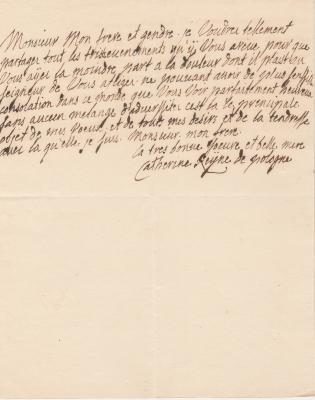 Monsieur Mon frere et gendre. je Voudrez tellement
partager tout les tristeevenements qu'ij Vous arive, pour que
Vous ayez la moindre part a la douleur dont il plast au
seigneur de Vous afliger. ne pouvant avoir de plus sensible
consolation dans ce monde que Vous Voir parfaitement heureux
sans aucun melange d'adversite. c'est la le principale
objet de mes Voeux, et de toute mes desirs et de la tendresse
avec la qu'elle, je suis. Monsieur. mon frere.
La tres bonne soeure et belle mere
Catherine Reyne de pologne